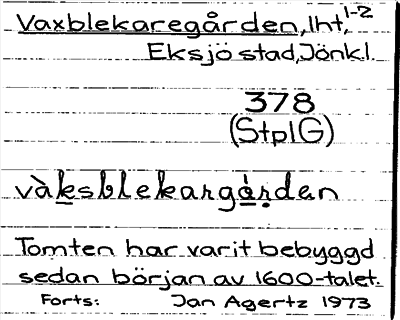 Vaxblekaregården, lht, 1-2
Eksjö stad, Jönk.l.
378
(StplG)
vàksblekargå̀ṛden
Tomten har varit bebyggd
sedan början av 1600-talet.
Forts: Jan Agertz 1973